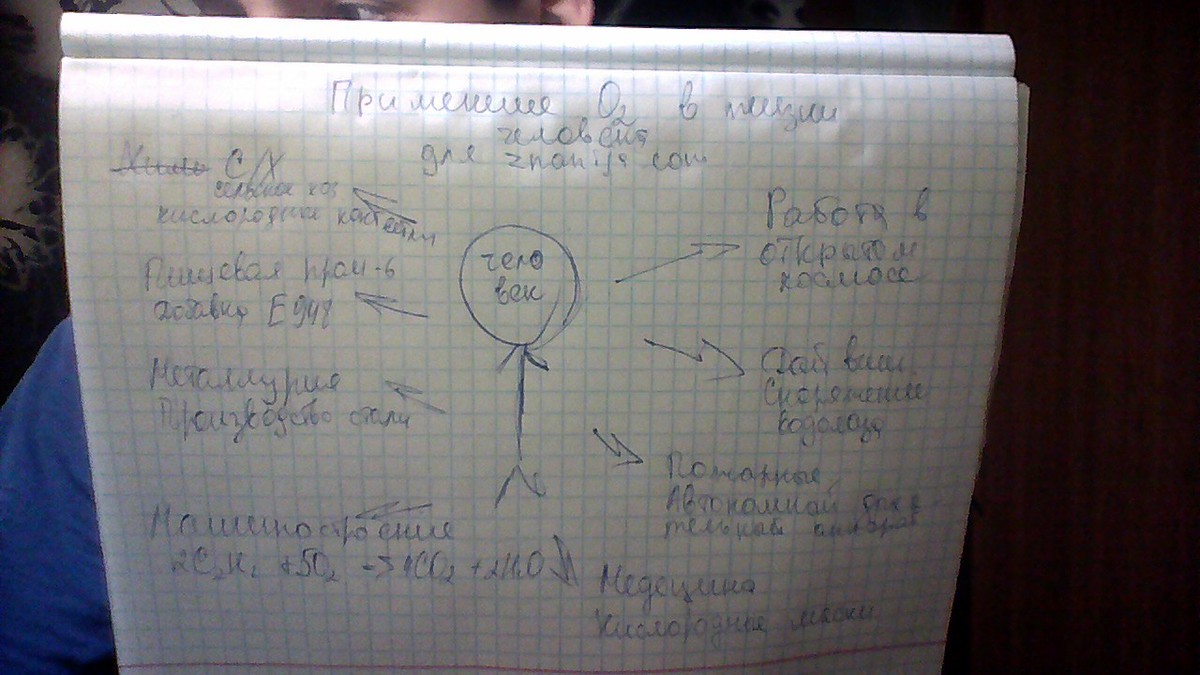 Применение O₂ в жизни
человека
для znanija com
С/Х
сельское хоз
кислородные коктейли
Пищевая пром-ь
добавка E948
Металлургия
Производство стали
Машиностроение
2C₂H₂ +5O₂ -> 4CO₂ +2H₂O
чело
век
Работа в
открытом
космосе
Дайвинг
Снаряжение
водолаза
Пожарные
Автономной дыха
тельный аппарат
Медецина
Кислородные маски